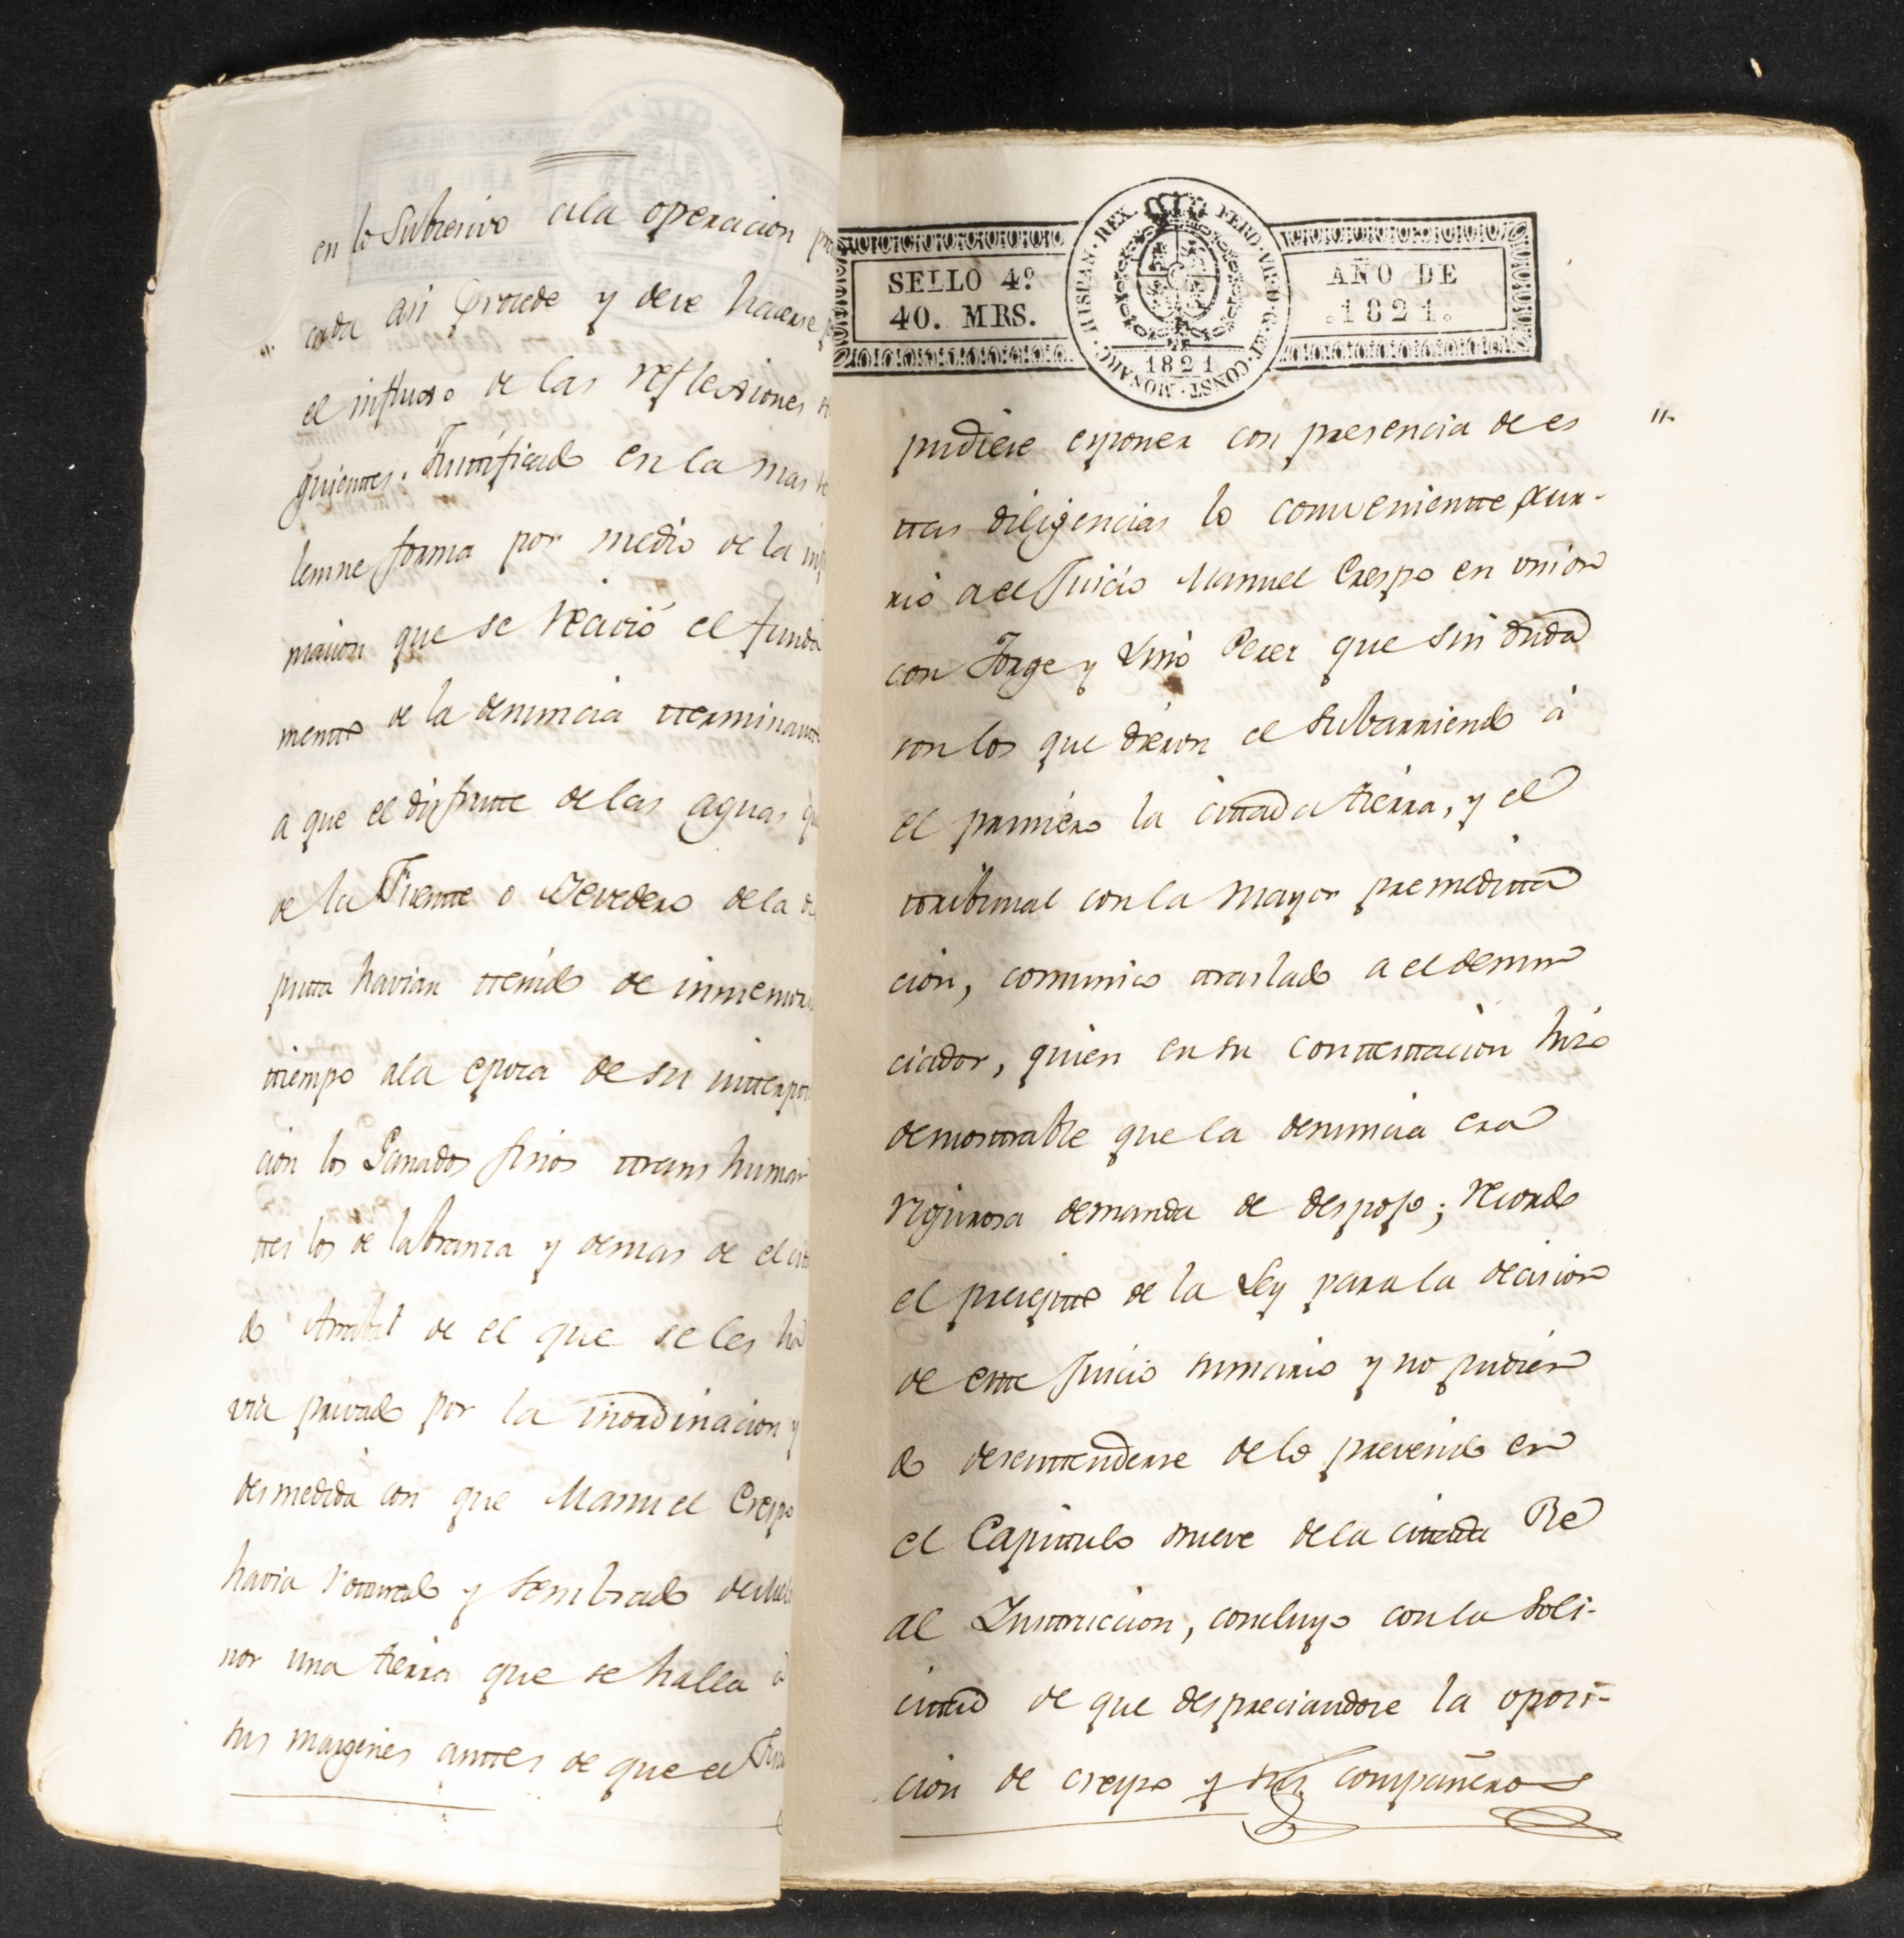 en lo Subcesivo ala operacion
cada asi procede y deve hacerse
el influxo de las reflexiones
guienttes. Justtificado en la mas
lemne forma por medio de la inf
macion que se recivió el funda
mentto de la denuncia tterminantte
a que el disfrutte de las aguas
de la Fuentte o Vevedero de la
putta havian ttenido de inmemori
ttiempo ala epoca de su intterpo
cion los Ganados finos ttrans human
ttes los de labranza y demas de el
do Arrabal de el que se les ha
via privado por la inordinacion y
desmedida con que Manuel Crespo
havia rotturado y sembrado
nor una tierra que se halla
sus margenes anttes de que el
SELLO 4º
40. MRS.
HISPAN · REX · FERD · VII · D · G · ET · CONST · MONARC ·
1821
AÑO DE
.1821.
pudiese exponer con presencia de es
ttas diligencias lo convenientte, ocur-
rió a el Juicio Manuel Crespo en union
con Jorge y Lino Perez que sin duda
son los que dieron el subarriendo á
el primero la cittada tierra, y el
ttribunal con la mayor premeditta
cion, comunico ttraslado a el denun
ciador, quien en su conttesttacion hizo
demosttrable que la denuncia era
rigurosa demanda de despojo; recordo
el preceptto de la Ley para la decision
de estte Juicio sumario y no pudien
do desenttenderse de lo prevenido en
el Capittulo nueve de la cittada Re
al Insttruccion, concluyo con la Soli-
cittud de que despreciandose la oposi-
cion de crespo y sus compañeros